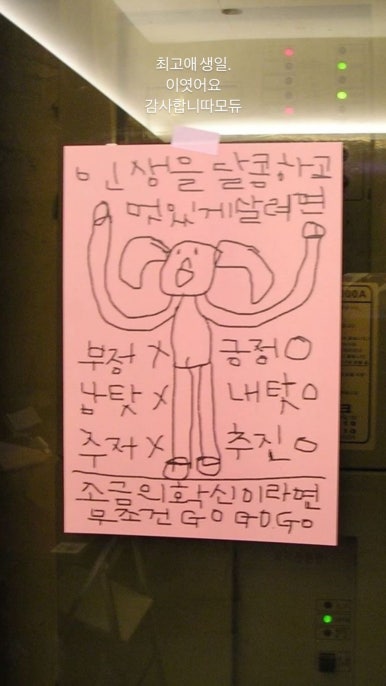 최고애 생일.
이엿어요
감사합니따모듀
인생을 달콤하고
멋있게살려면
부정 X 긍정 O
남탓 X 내탓 O
주저 X 추진 O
조금의확신이라면
무조건 GO GO GO